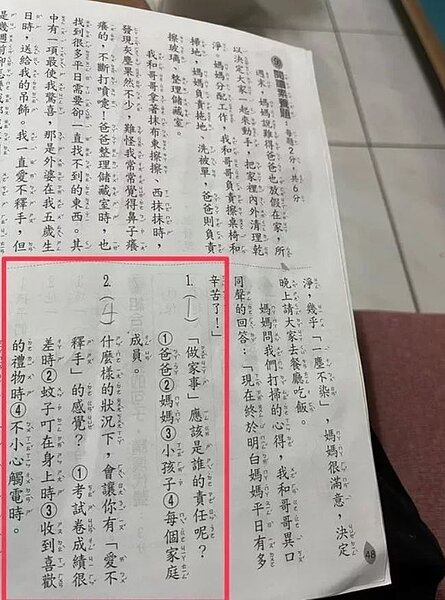 9 閱讀素養題 每題2分,共6分
週末,媽媽說難得爸爸也放假在家,所
以決定大家一起來動手,把家裡內外清理乾
淨,媽媽分配工作,我和哥哥負責擦桌椅和
掃地,媽媽負責拖地、洗被單,爸爸則負責
擦玻璃、整理儲藏室。
我和哥哥拿著抹布東擦擦、西抹抹時,
發現灰塵果然不少,難怪我常常覺得鼻子癢
癢的,不斷打噴嚏!爸爸整理儲藏室時,也
找到很多平日需要卻一直找不到的東西。其
中有一項最使我驚喜,那是外婆在我五歲生
日時,送給我的吊飾。我一直愛不釋手,但
淨,幾乎「一塵不染」,媽媽很滿意,決定
晚上請大家去餐廳吃飯。
媽媽問我們打掃的心得,我和哥哥異口
同聲的回答:「現在終於明白媽媽平日有多
辛苦了!」
1.( )「做家事」應該是誰的責任呢?
①爸爸②媽媽③小孩子④每個家庭
成員。
2.( )什麼樣的狀況下,會讓你有「愛不
釋手」的感覺?①考試卷成績很
差時②蚊子叮在身上時③收到喜歡
的禮物時④不小心觸電時。
48